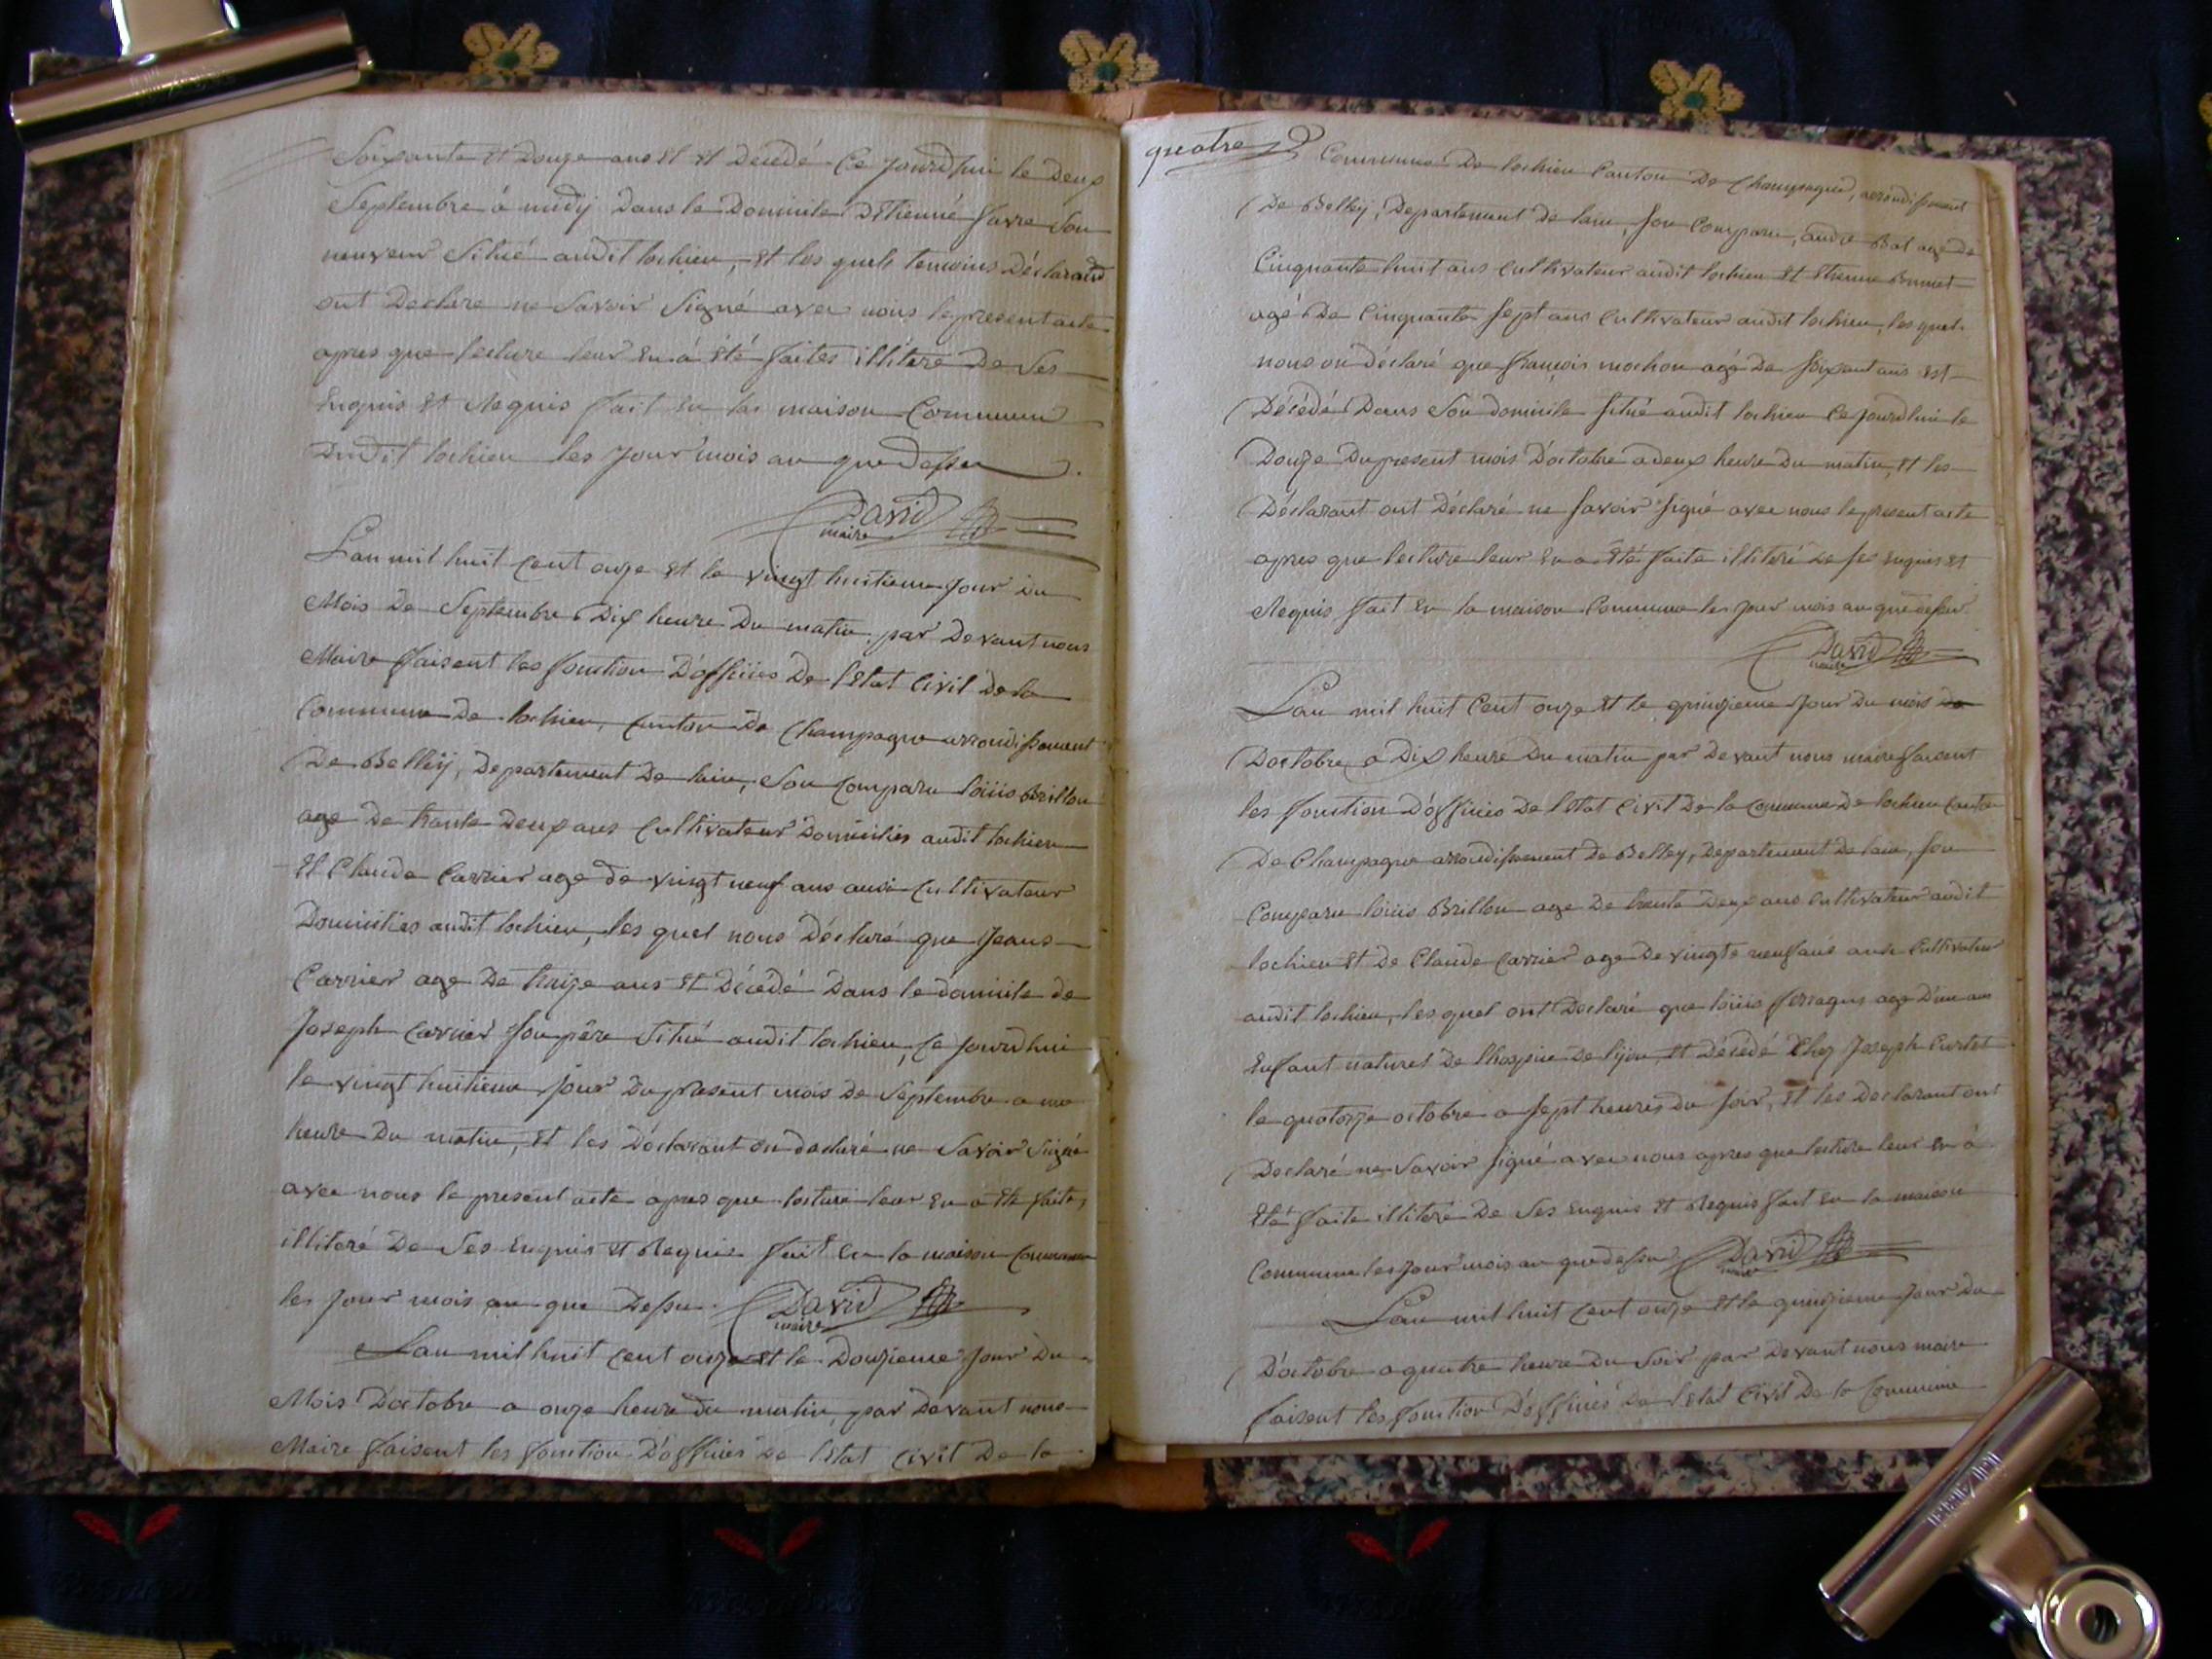 Soixante et Douze ans et et Décédé Ce Jourd'hui le Deux
Septembre á midÿ Dans le Domicile D'Etienne favre Son
neuveur Situé audit lochieu, et les quels temoins Déclarand
ont Declare ne Savoir Signé avec nous le present acte
apres que lecture leur en á été faites illiteré De Ses
Enquis et Requis fait en la maison Commune
Dudit lochieu les Jour mois an que Dessu
David
maire
L'an mil huit Cent onze et le vingt huitieme Jour du
Mois De Septembre Dix heure Du matin par Devant nous
Maire faisent les fonction D'officies De l'Etat Civil de la
Commune De lochieu, Canton de Champagne arrondissement
De Belleÿ, Departement De lain, Son Comparu loüis Brillon
age De trante Deux ans Cultivateur Domicilies audit lochieu
Et Claude Carrier age de vingt neuf ans ausi Cultivateur
Domicilies audit lochieu, les quel nous Déclaré que Jeans
Carrier age De treize ans et Décédé Dans le domicile de
Joseph Carrier Son père Situé audit lochieu, Ce Jourd'hui
le vingt huitieme Jour Du present mois De Septembre a une
heure Du matin, et les Déclarant on declaré ne Savoir Signé
avec nous le present acte apres que lecture leur en a été faite,
illiteré De Ses Enquis et Requis fait en la maison Commune
les Jour mois an que Dessu. David
maire
L'an mil huit Cent onze et le Douzieme Jour Du
Mois D'octobre a onze heure du matin, par Devant nous
Maire faisent les fonction D'officies De l'Etat Civil De la
quatre
Commune De lochieu Canton De Champagne, arrondissement
De Belleÿ, Departement De lain, Son Comparu, andre Bal age De
Cinquante huit ans Cultivateur audit lochieu et Etienne
agé De Cinquante Sept ans Cultivateur audit lochieu, les quel
nous on déclaré que françois mochon agé De Soixant ans est
Décédé Dans Son domicile Situé audit lochieu Ce Jourdhui le
Douze Du present mois D'octobre a deux heure Du matin, et les
Déclarant ont Déclaré ne Savoir Signé avec nous le present acte
apres que lecture leur en a été faite illiteré De Ses Enquis et
Requis fait en la maison Commune les Jour mois an que dessu
David
maire
L'an mil huit Cent onze et le quinzieme Jour Du mois de
D'octobre a Dix heure Du matin par Devant nous maire faisent
les fonction D'officies De l'Etat Civil De la Commune De lochieu Canton
De Champagne arrondissement De Belley, Departement De lain, Son
Comparu loüis Brillon age De trante Deux ans Cultivateur audit
lochieu et De Claude Carrier age De vingte neuf ans Cultivateur
audit lochieu, les quel ont Declaré que loüis ferragus age D'un ans
Enfant naturel De l'hospice De lÿon, et Décédé Chez Joseph Curtet
le quatorze octobre a Sept heures du Soir, et les Declarant ont
Declaré ne Savoir Signé avec nous apres que lecture leur en á
Eté faite illiteré De Ses Enquis et Requis fait en la maison
Commune les Jour mois an que dessu David
maire
L'an mil huit Cent onze et le quinzieme Jour Du
D'octobre a quatre heure Du Soir par Devant nous maire
faisent les fonction D'officies De l'Etat Civil De la Commune